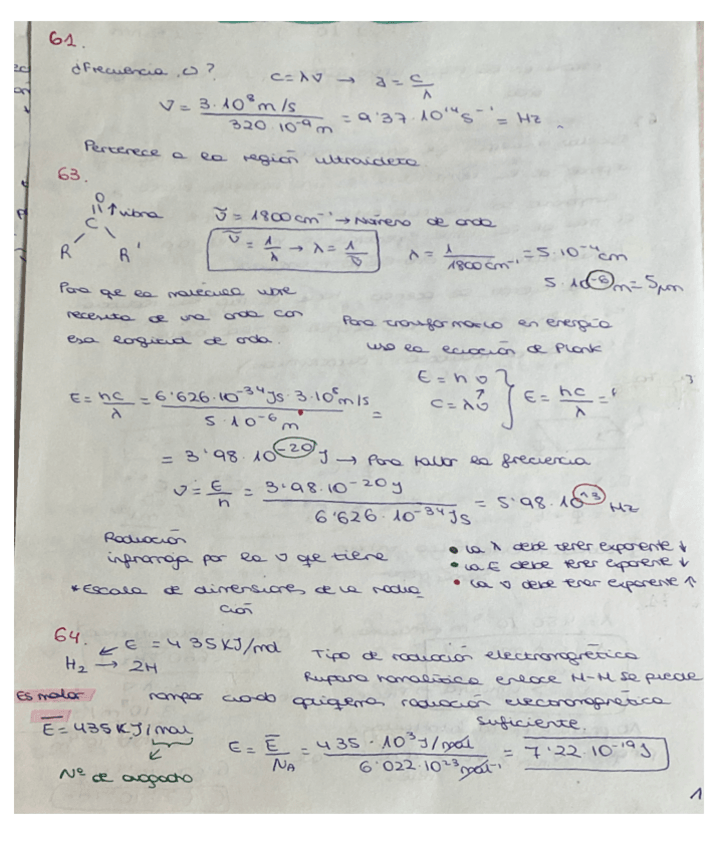 61.
¿Frecuencia, ν?   c = λν → ν = c/λ
ν = 3·10⁸ m/s / 320·10⁻⁹ m = 9'37·10¹⁴ s⁻¹ = Hz
Pertenece a la región ultravioleta
63.
O
C ↑ vibra   ν̄ = 1800 cm⁻¹ → Número de onda
R   R'   ν̄ = 1/λ → λ = 1/ν̄   λ = 1/1800 cm⁻¹ = 5·10⁻⁴ cm
5·10⁻⁶ m = 5 μm
Para que la molécula vibre
necesita de una onda con
esa longitud de onda.
Para transformarlo en energía
uso la ecuación de Plank
E = hν
c = λν } E = hc/λ =
E = hc/λ = 6'626·10⁻³⁴ Js · 3·10⁸ m/s / 5·10⁻⁶ m =
= 3'98·10⁻²⁰ J → Para hallar la frecuencia
ν = E/h = 3'98·10⁻²⁰ J / 6'626·10⁻³⁴ Js = 5'98·10¹³ Hz
Radiación
infrarroja por la ν que tiene
• La λ debe tener exponente ↓
• La E debe tener exponente ↓
• La ν debe tener exponente ↑
*Escala de dimensiones de la radia
ción
64.
E = 435 KJ/mol
H₂ → 2H
Tipo de radiación electromagnética
Rupura homolítica enlace H-H se puede
romper cuando radiación electromagnética
suficiente.
Es molar
E̅ = 435 KJ/mol
Nº de avogadro
E = E̅/N_A = 435·10³ J/mol / 6'022·10²³ mol⁻¹ = 7'22·10⁻¹⁹ J
1